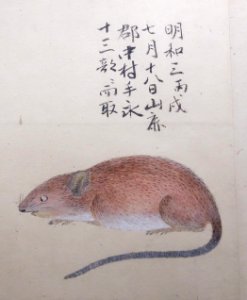 明和三丙戌
七月十八日山鹿
郡中村手永
十三部ニ而取